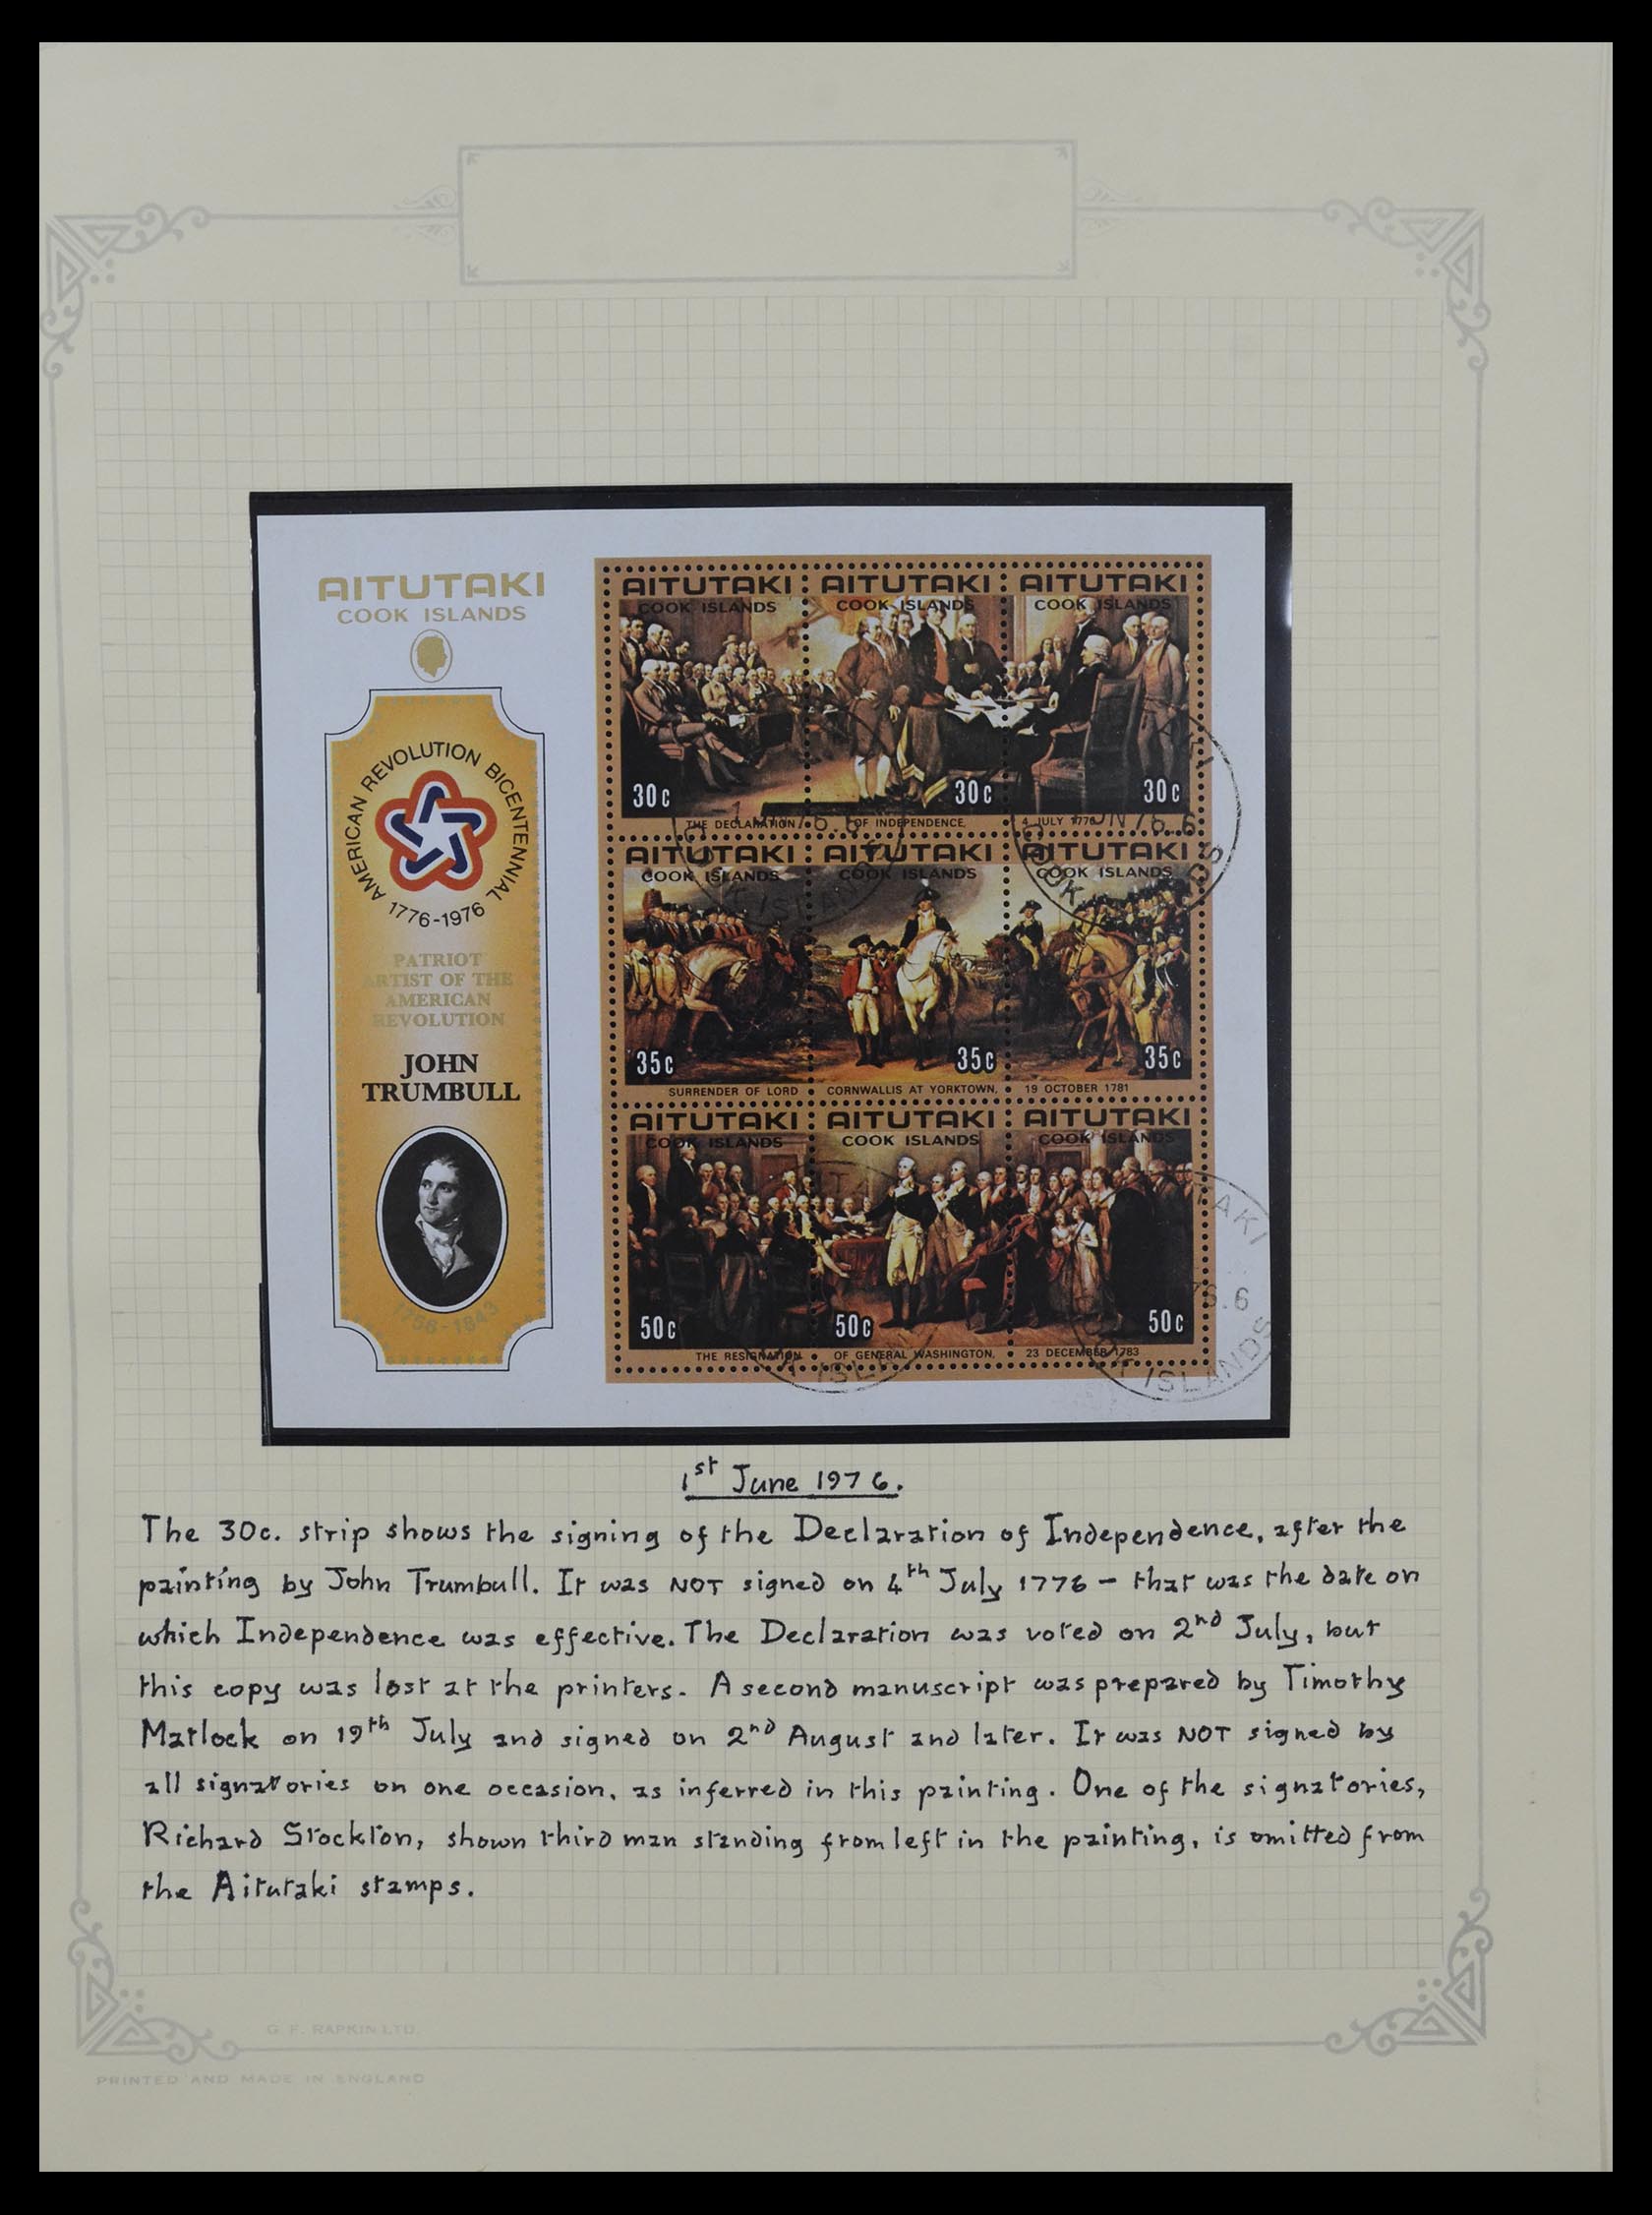 AITUTAKI
COOK ISLANDS
AMERICAN REVOLUTION BICENTENNIAL
1776-1976
PATRIOT
ARTIST OF THE
AMERICAN
REVOLUTION
JOHN
TRUMBULL
1756-1843
AITUTAKI AITUTAKI AITUTAKI
COOK ISLANDS COOK ISLANDS COOK ISLANDS
30c 30c 30c
THE DECLARATION OF INDEPENDENCE, 4 JULY 1776
AITUTAKI AITUTAKI AITUTAKI
COOK ISLANDS COOK ISLANDS COOK ISLANDS
35c 35c 35c
SURRENDER OF LORD CORNWALLIS AT YORKTOWN, 19 OCTOBER 1781
AITUTAKI AITUTAKI AITUTAKI
COOK ISLANDS COOK ISLANDS COOK ISLANDS
50c 50c 50c
THE RESIGNATION OF GENERAL WASHINGTON, 23 DECEMBER 1783
1st June 1976.
The 30c. strip shows the signing of the Declaration of Independence, after the
painting by John Trumbull. It was NOT signed on 4th July 1776 – that was the date on
which Independence was effective. The Declaration was voted on 2nd July, but
this copy was lost at the printers. A second manuscript was prepared by Timothy
Matlock on 19th July and signed on 2nd August and later. It was NOT signed by
all signatories on one occasion, as inferred in this painting. One of the signatories,
Richard Stockton, shown third man standing from left in the painting, is omitted from
the Aitutaki stamps.
G. F. RAPKIN LTD.
PRINTED AND MADE IN ENGLAND